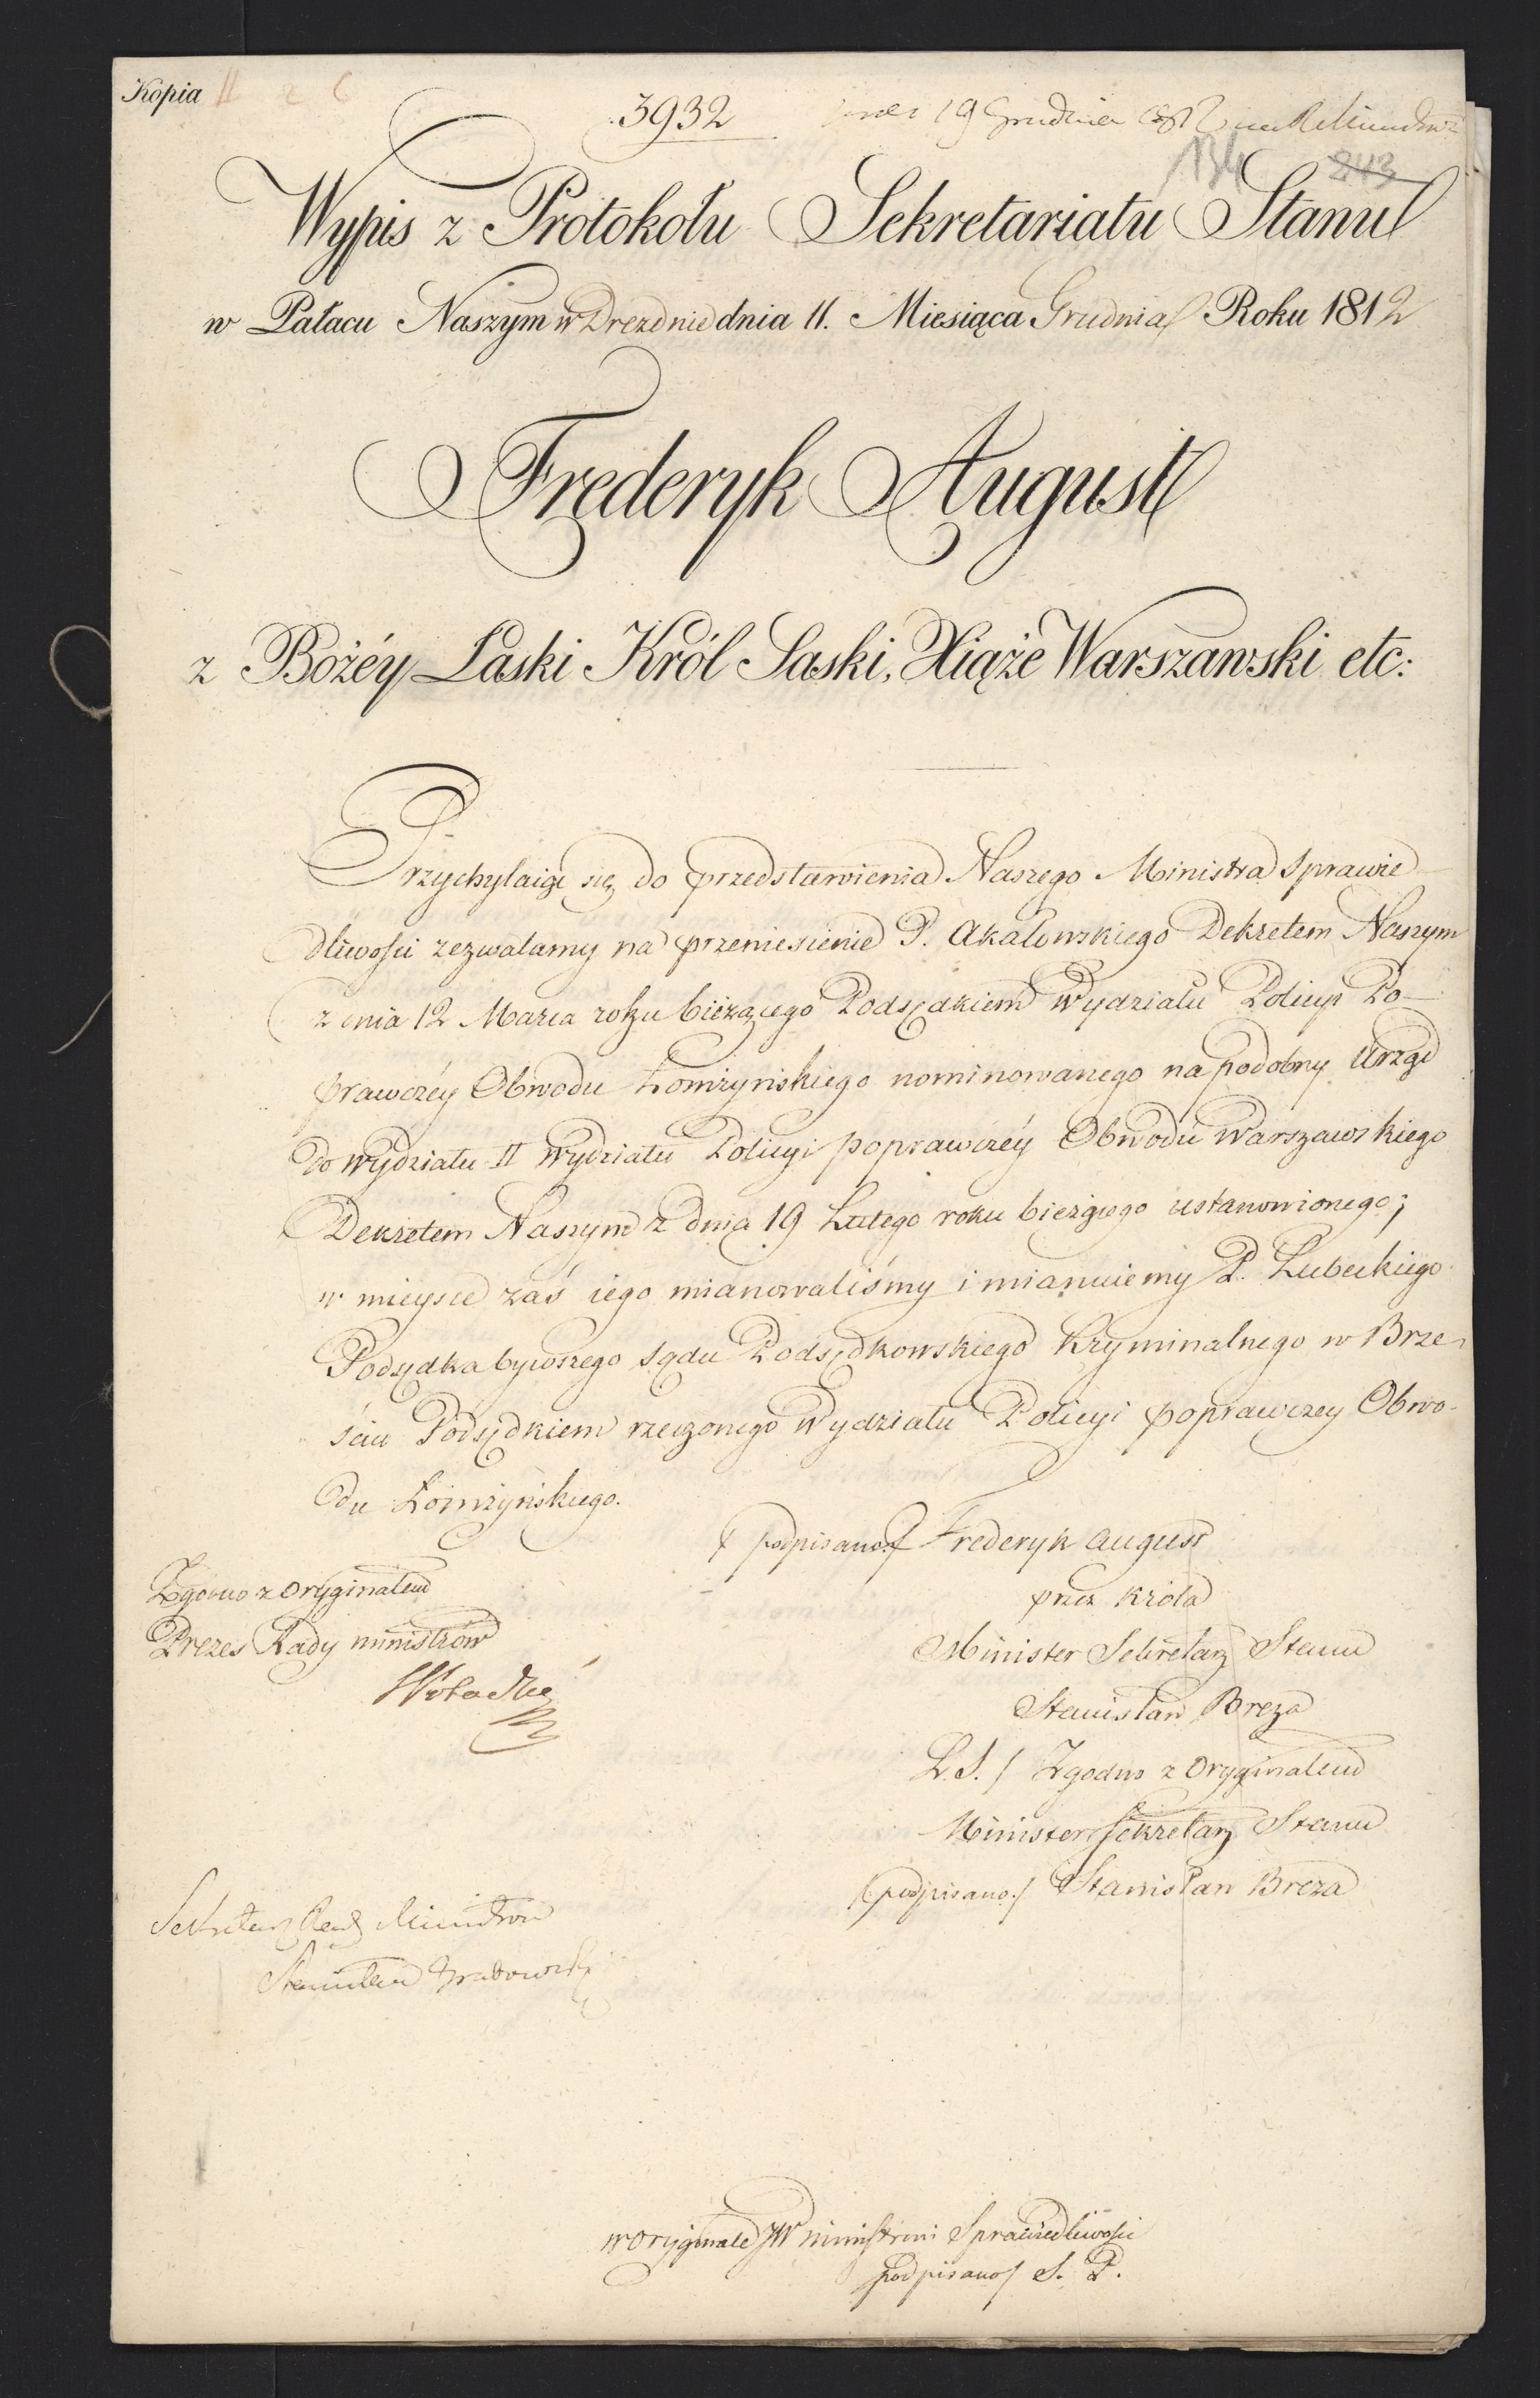 Kopia
3932
19 Grudnia
134 243
Wypis z Protokołu Sekretariatu Stanu
w Pałacu Naszym w Dreznie dnia 11. Miesiąca Grudnia Roku 1812
Frederyk August
z Bożéy Łaski Król Saski, Xiąże Warszawski etc:
Przychylaiąc się do przedstawienia Naszego Ministra Sprawie
dliwości zezwalamy na przeniesienie P. Akałowskiego Dekretem Naszym
z dnia 12 Marca roku bieżącego Podsędkiem Wydziału Policyi Po-
prawczéy Obwodu Łomżyńskiego nominowanego na podobny Urząd
do Wydziału II Wydziału Policyi poprawczéy Obwodu Warszawskiego
Dekretem Naszym z dnia 19 Lutego roku bieżącego ustanowionego;
w mieysce zaś iego mianowaliśmy i mianuiemy P. Lubeckiego
Podsędka bywszego Sądu Podsędkowskiego Kryminalnego w Brze-
ściu Podsędkiem rzeczonego Wydziału Policyi poprawczey Obwo-
du Łomżyńskiego.
(podpisano) Frederyk August
Zgodno z Oryginałem
przez Króla
Prezes Rady ministrów
Minister Sekretarz Stanu
Stanisław Breza
L. S. / Zgodno z Oryginałem
Minister Sekretarz Stanu
(podpisano) / Stanisław Breza
Sekretarz Rady Ministrow
Stanisław Grabowski
w oryginale JW Ministrowi Sprawiedliwości
podpisano / S. P.